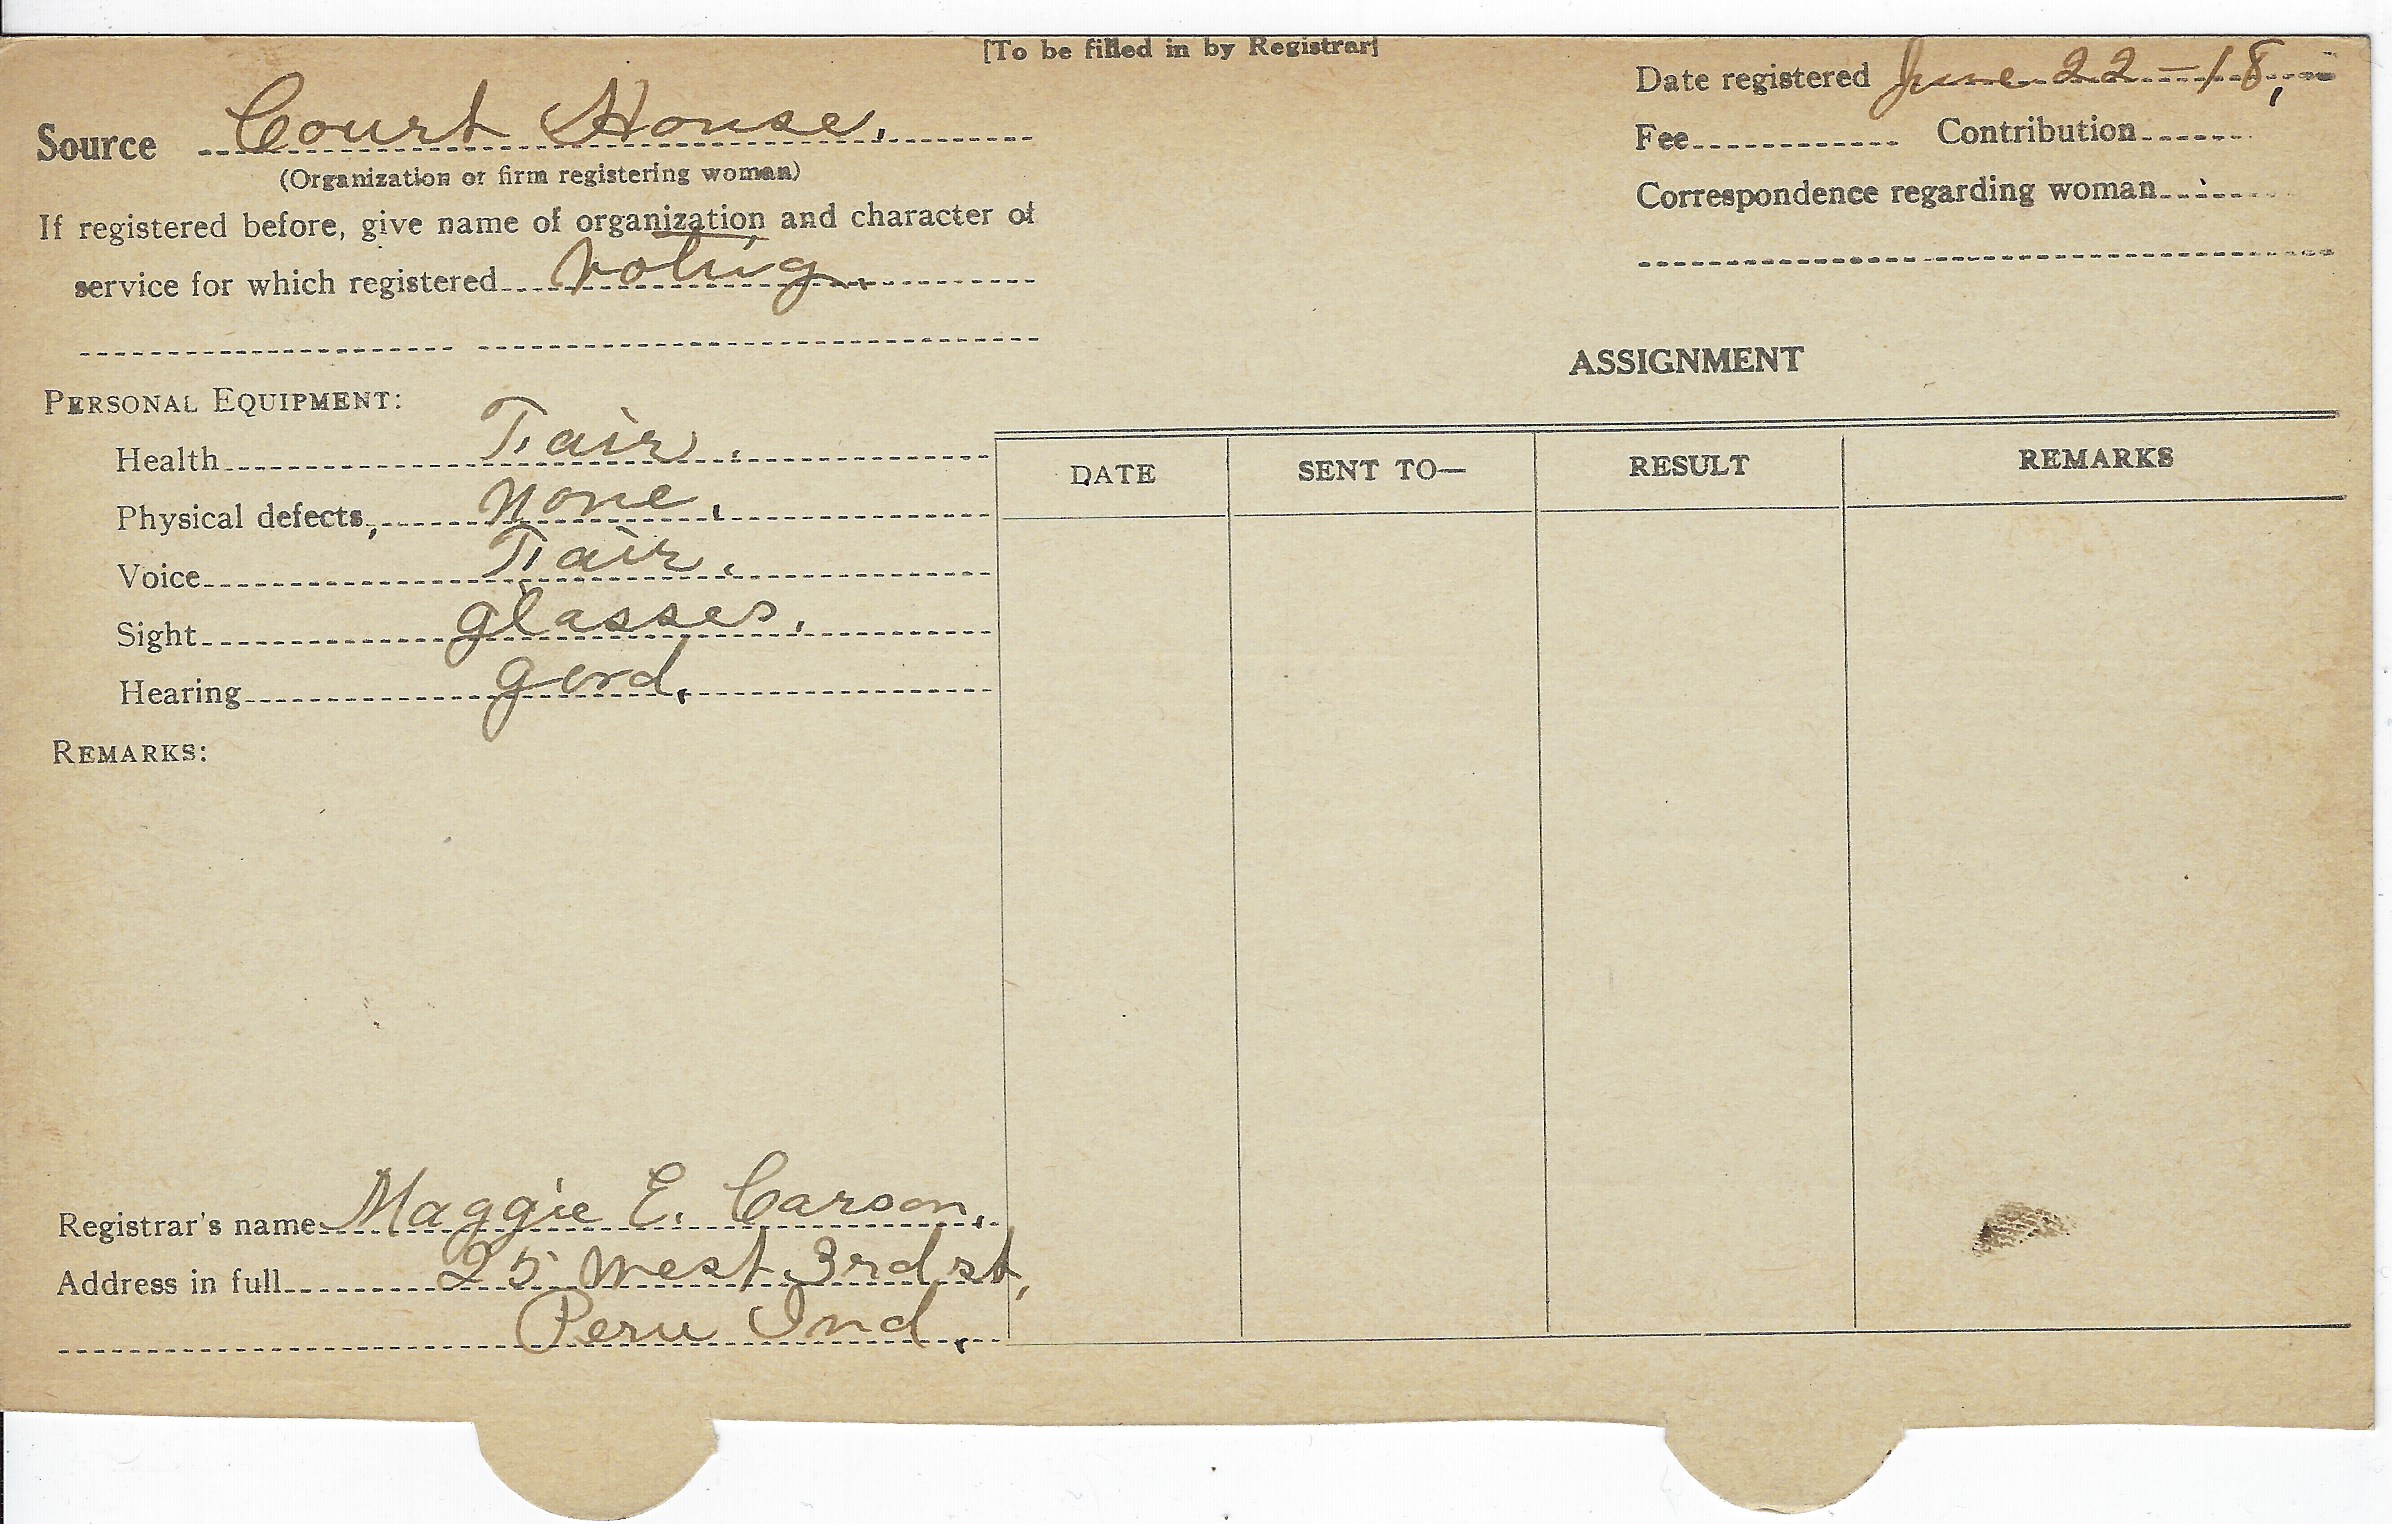 [To be filled in by Registrar]
Source Court House.
(Organization or firm registering woman)
If registered before, give name of organization and character of
service for which registered voting.
Date registered June 22-18,
Fee Contribution
Correspondence regarding woman
PERSONAL EQUIPMENT:
Health Fair.
Physical defects, None.
Voice Fair.
Sight glasses.
Hearing good.
REMARKS:
Registrar's name Maggie E. Carson.
Address in full 25 West 3rd st,
Peru Ind.
ASSIGNMENT
DATE SENT TO— RESULT REMARKS